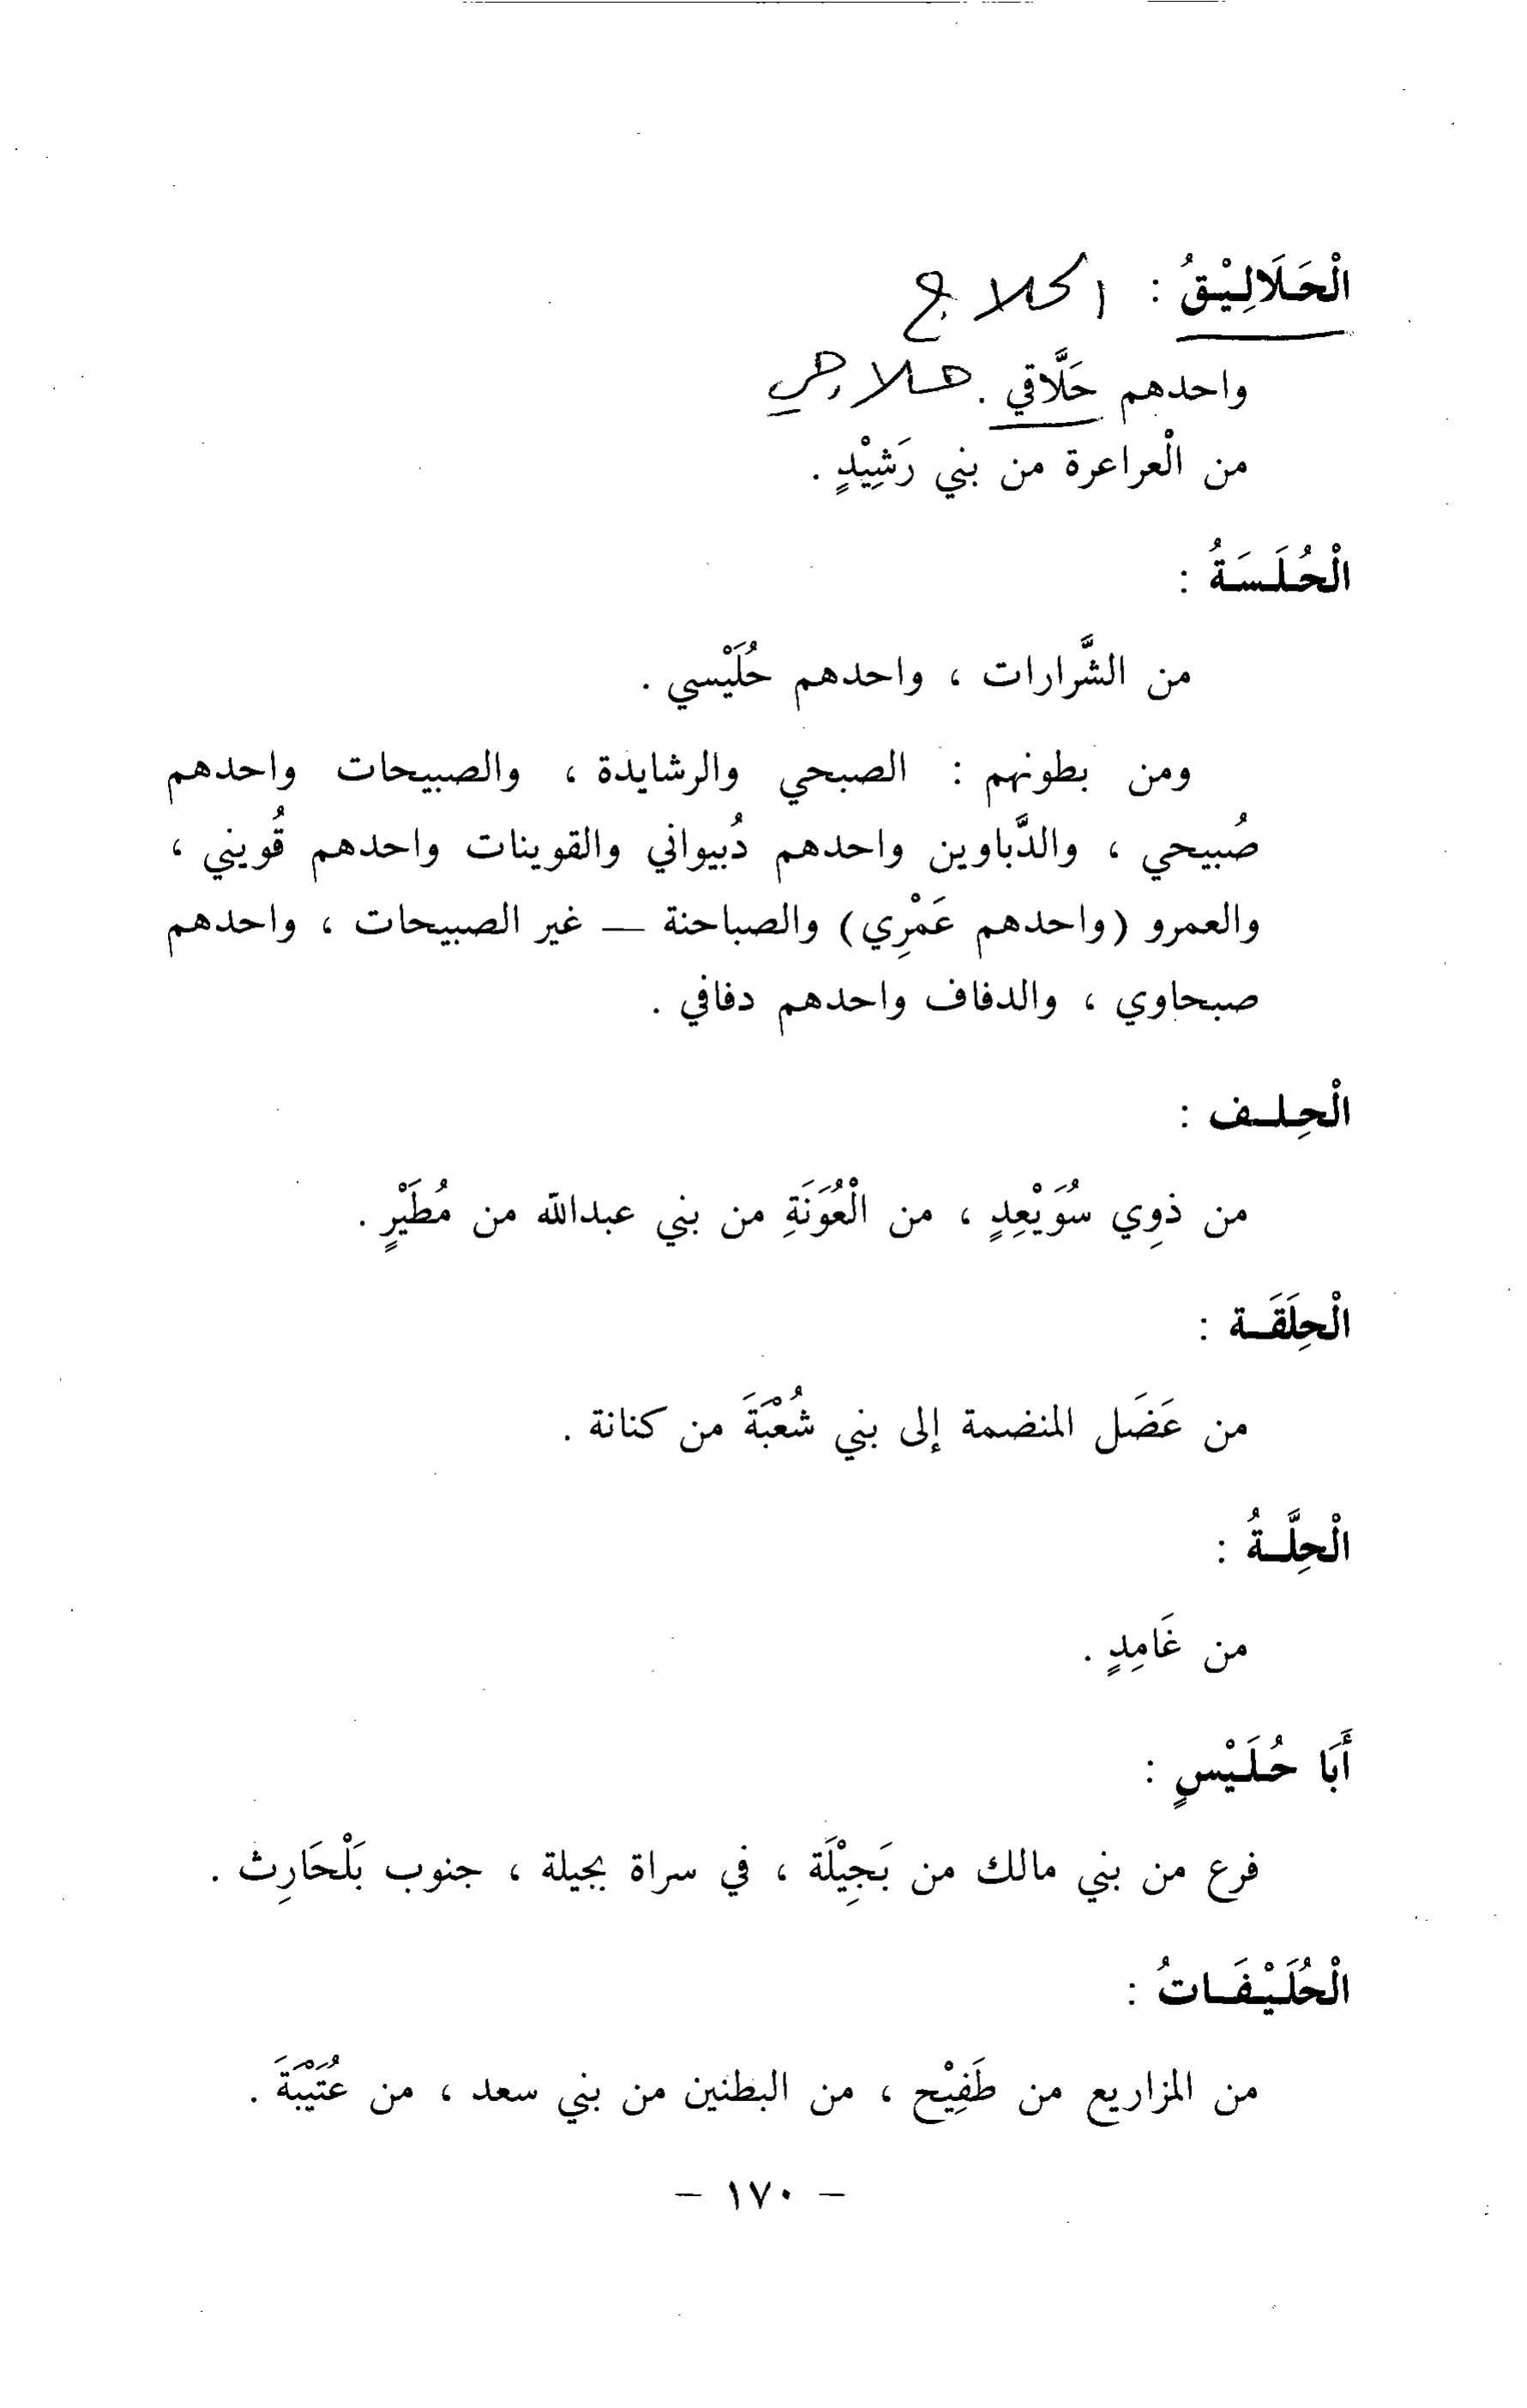 الْحَلَالِيْقُ : الحلاج
واحدهم حَلَّاقي . حلاجي
من الْعراعرة من بني رَشِيْدٍ .
الْحُلَسَةُ :
من الشَّرارات ، واحدهم حُلَيْسي .
ومن بطونهم : الصبحي والرشايدة ، والصبيحات واحدهم
صُبيحي ، والدَّباوين واحدهم دُبيواني والقوينات واحدهم قُويني ،
والعمرو (واحدهم عَمْرِي) والصباحنة — غير الصبيحات ، واحدهم
صبحاوي ، والدفاف واحدهم دفافي .
الْحِلف :
من ذوِي سُوَيْعِدٍ ، من الْعُوَنَةِ من بني عبدالله من مُطَيْرٍ .
الْحِلَقَة :
من عَضَل المنضمة إلى بني شُعْبَةَ من كنانة .
الْحِلَّةُ :
من غَامِدٍ .
أَبَا حُلَيْسٍ :
فرع من بني مالك من بَجِيْلَة ، في سراة بجيلة ، جنوب بَلْحَارِث .
الْحُلَيْفَاتُ :
من المزاريع من طَفِيْح ، من البطنين من بني سعد ، من عُتَيْبَةَ .
– ١٧٠ –